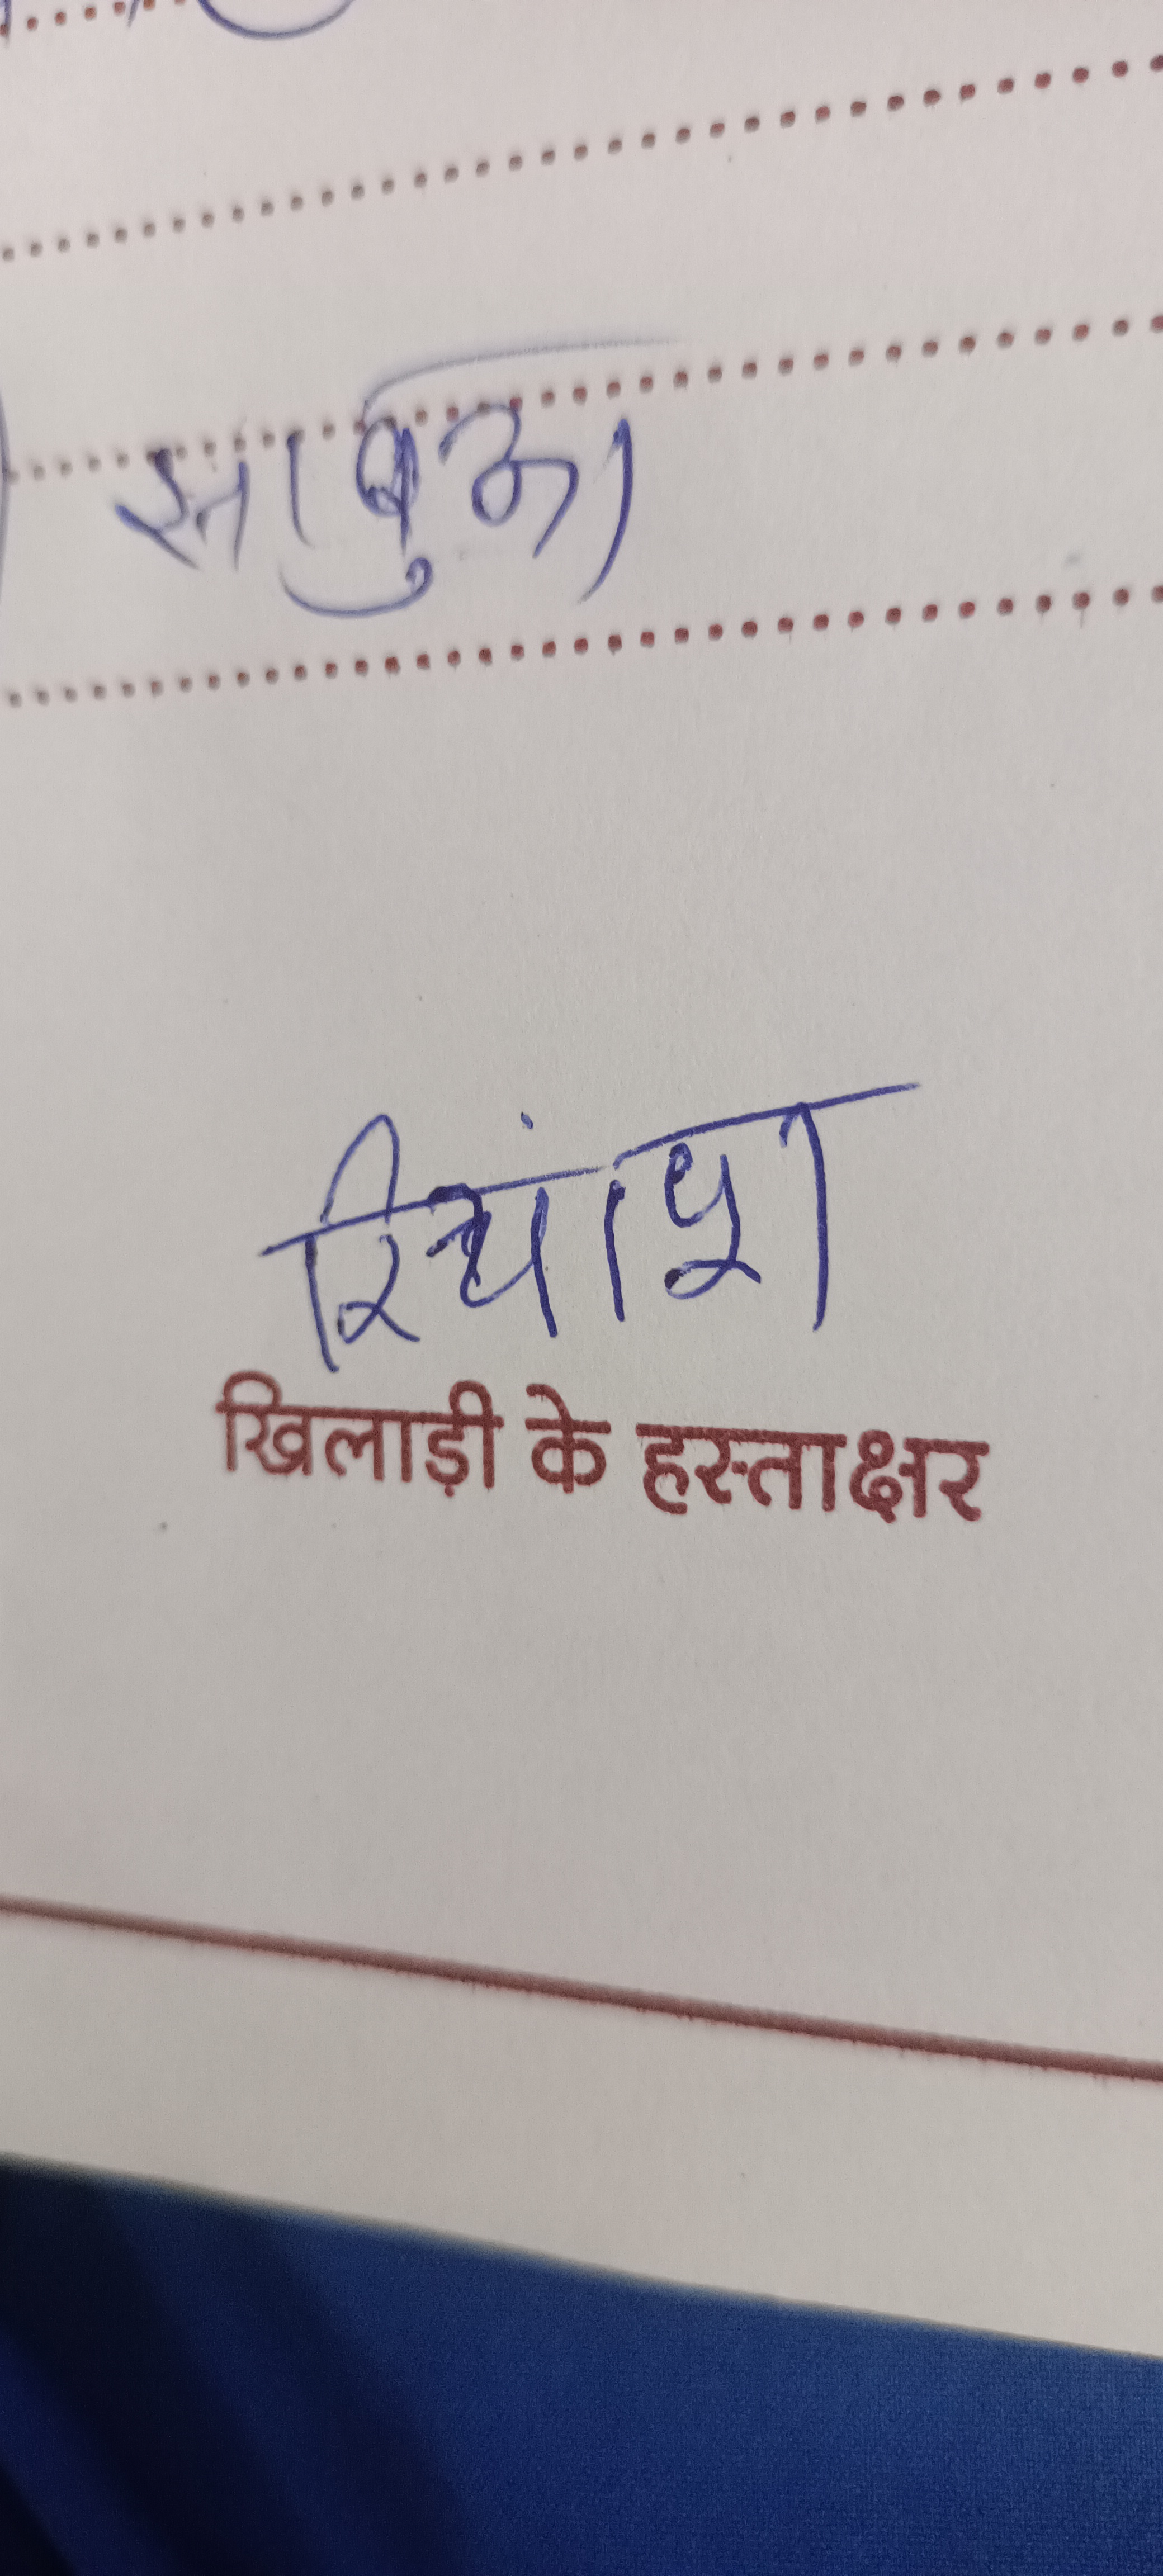 झाबुआ
रियांश
खिलाड़ी के हस्ताक्षर